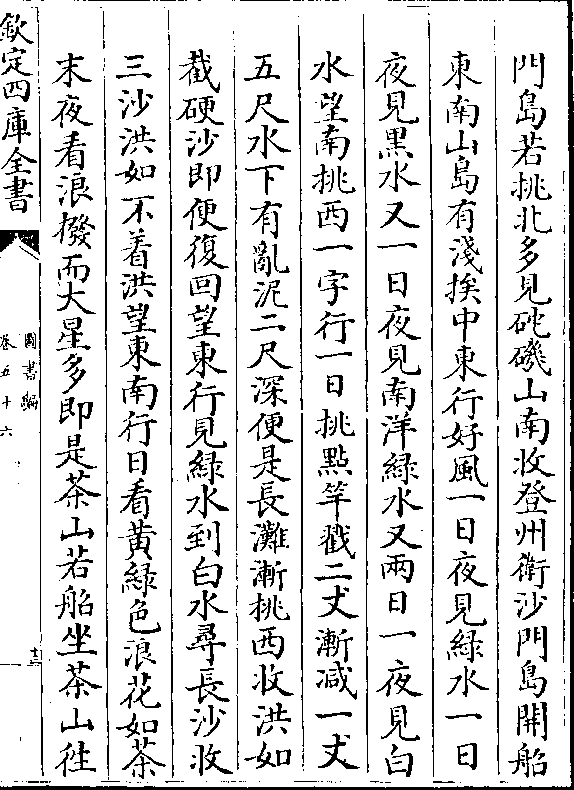 門島若挑北多見砣磯山南收登州衛沙門島開船
東南山島有淺挨中東行好風一日夜見緑水一日
夜見黒水又一日夜見南洋緑水又兩日一夜見白
水望南挑西一字行一日挑㸃竿戳二丈漸减一丈
五尺水下有亂泥二尺深便是長灘漸挑西收洪如
截硬沙即便復回望東行見緑水到白水尋長沙收
三沙洪如不着洪望東南行日看黄緑色浪花如茶
末夜看浪撥而大星多即是茶山若船坐茶山徃
欽定四庫全書
圖書編
卷五十六
十三